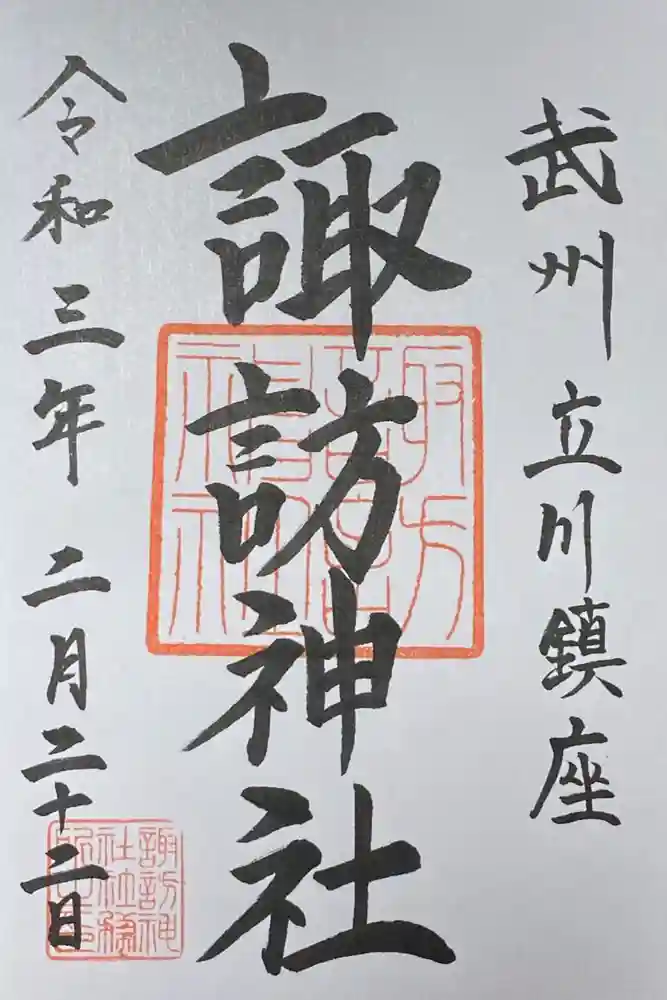 武州立川鎮座
諏訪神社
令和三年二月二十二日